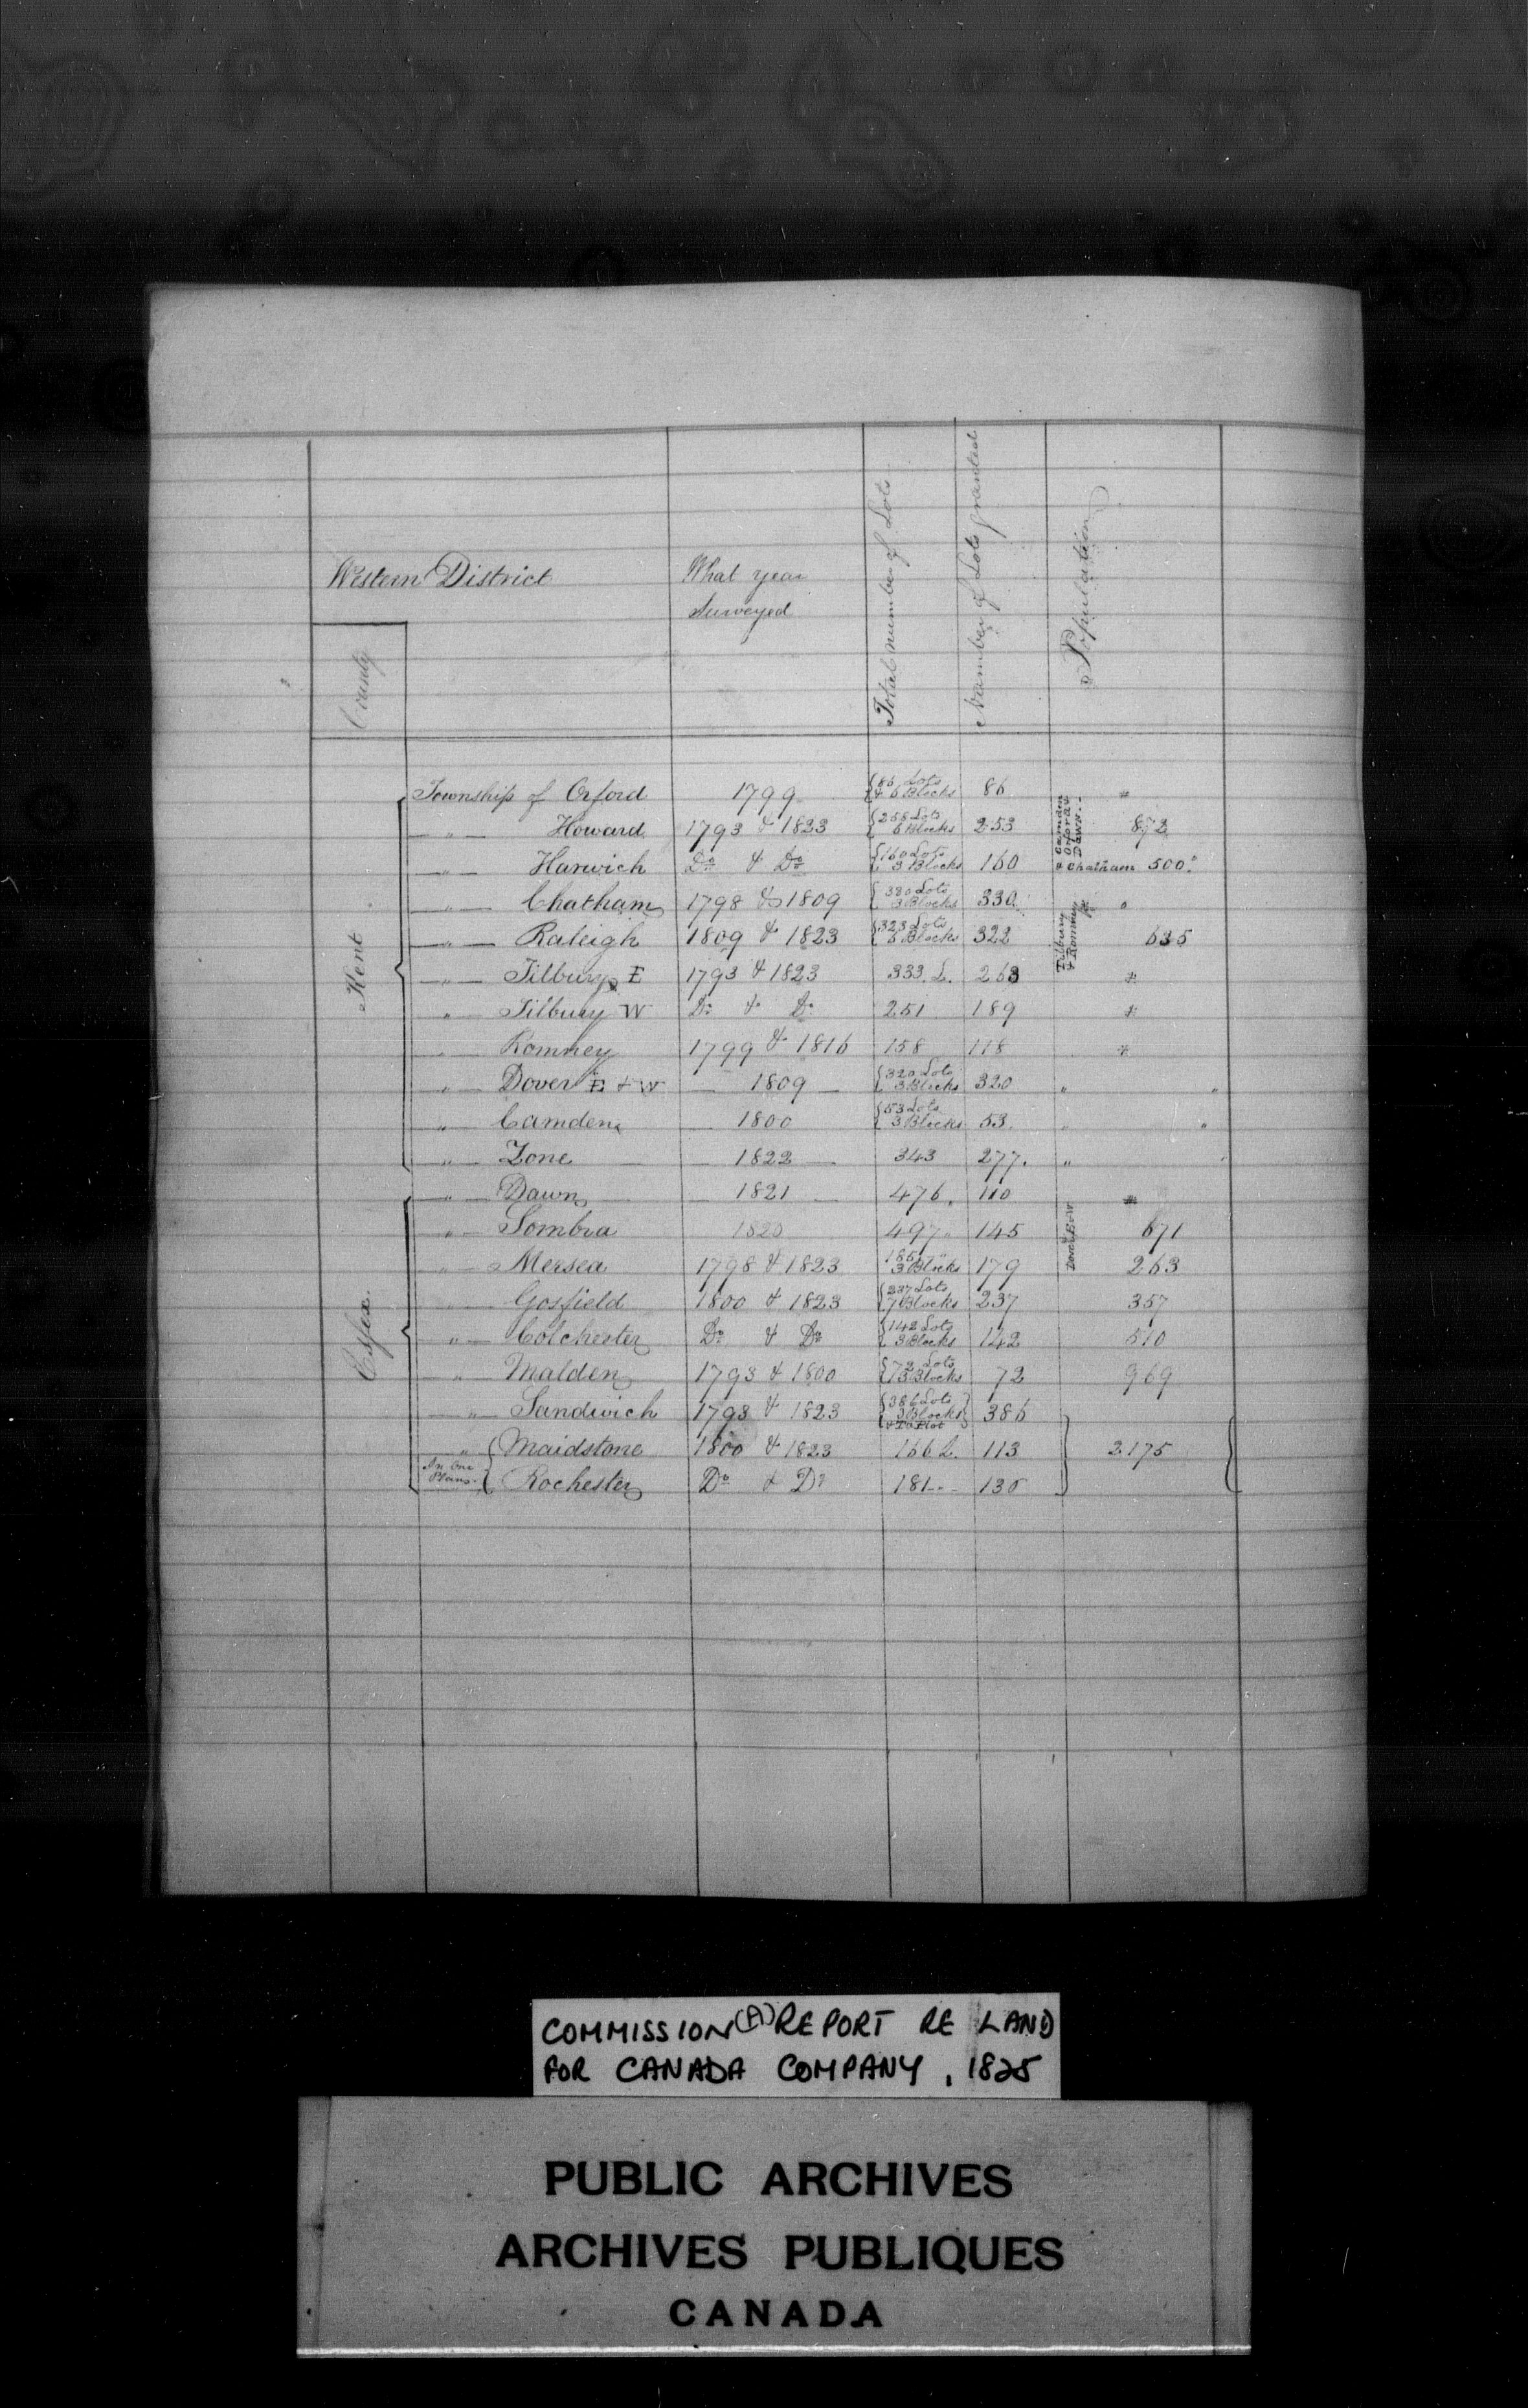 Western District
What year
Surveyed
Total number of Lots
Number of Lots granted
Population
County
Kent
Essex.
Township of Orford 1799 86 Lots & 6 Blocks 86 *
" Howard 1793 & 1823 258 Lots 6 Blocks 253 Camden Orford & Dawn. 872
" Harwich Do & Do 160 Lots 3 Blocks 160 & Chatham 500
" Chatham 1798 & 1809 330 Lots 3 Blocks 330 "
" Raleigh 1809 & 1823 323 Lots 6 Blocks 322 Tilbury & Romney 635
" Tilbury E 1793 & 1823 333. L. 263 *
" Tilbury W Do & Do 251 189 *
" Romney 1799 & 1816 158 118 *
" Dover E & W 1809 320 Lots 3 Blocks 320 " "
" Camden 1800 53 Lots 3 Blocks 53 " "
" Zone 1822 343 277. " "
" Dawn 1821 476. 110 *
" Sombra 1820 497 " 145 Dover E & W 671
" Mersea 1798 & 1823 185 " 3 Blocks 179 263
" Gosfield 1800 & 1823 237 Lots 7 Blocks 237 357
" Colchester Do & Do 142 Lots 3 Blocks 142 510
" Malden 1793 & 1800 72 Lots 13 Blocks 72 969
" Sandwich 1793 & 1823 386 Lots 3 Blocks 386
" Maidstone 1800 & 1823 166 L. 113 2.175
In One Plans. Rochester Do & Do 181 " 130
COMMISSION (A) REPORT RE LAND
FOR CANADA COMPANY, 1825
PUBLIC ARCHIVES
ARCHIVES PUBLIQUES
CANADA